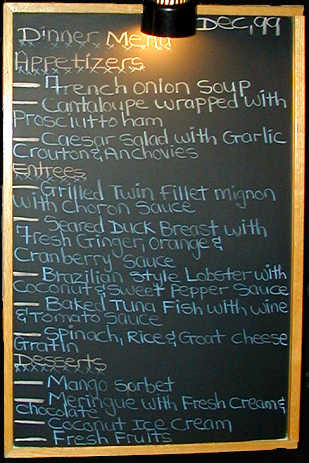 Dec, 99
Dinner Menu
Appetizers
— French onion soup
— Cantaloupe wrapped with
Prosciutto ham
— Caesar Salad with Garlic
Crouton & Anchovies
Entrees
— Grilled Twin Fillet mignon
with Choron Sauce
— Seared Duck Breast with
Fresh Ginger, orange &
Cranberry Sauce
— Brazilian Style Lobster with
Coconut & Sweet Pepper Sauce
— Baked Tuna Fish with wine
& Tomato Sauce
— Spinach, Rice & Goat cheese
Gratin
Desserts
— Mango Sorbet
— Meringue with Fresh Cream &
chocolate
— Coconut Ice Cream
— Fresh Fruits